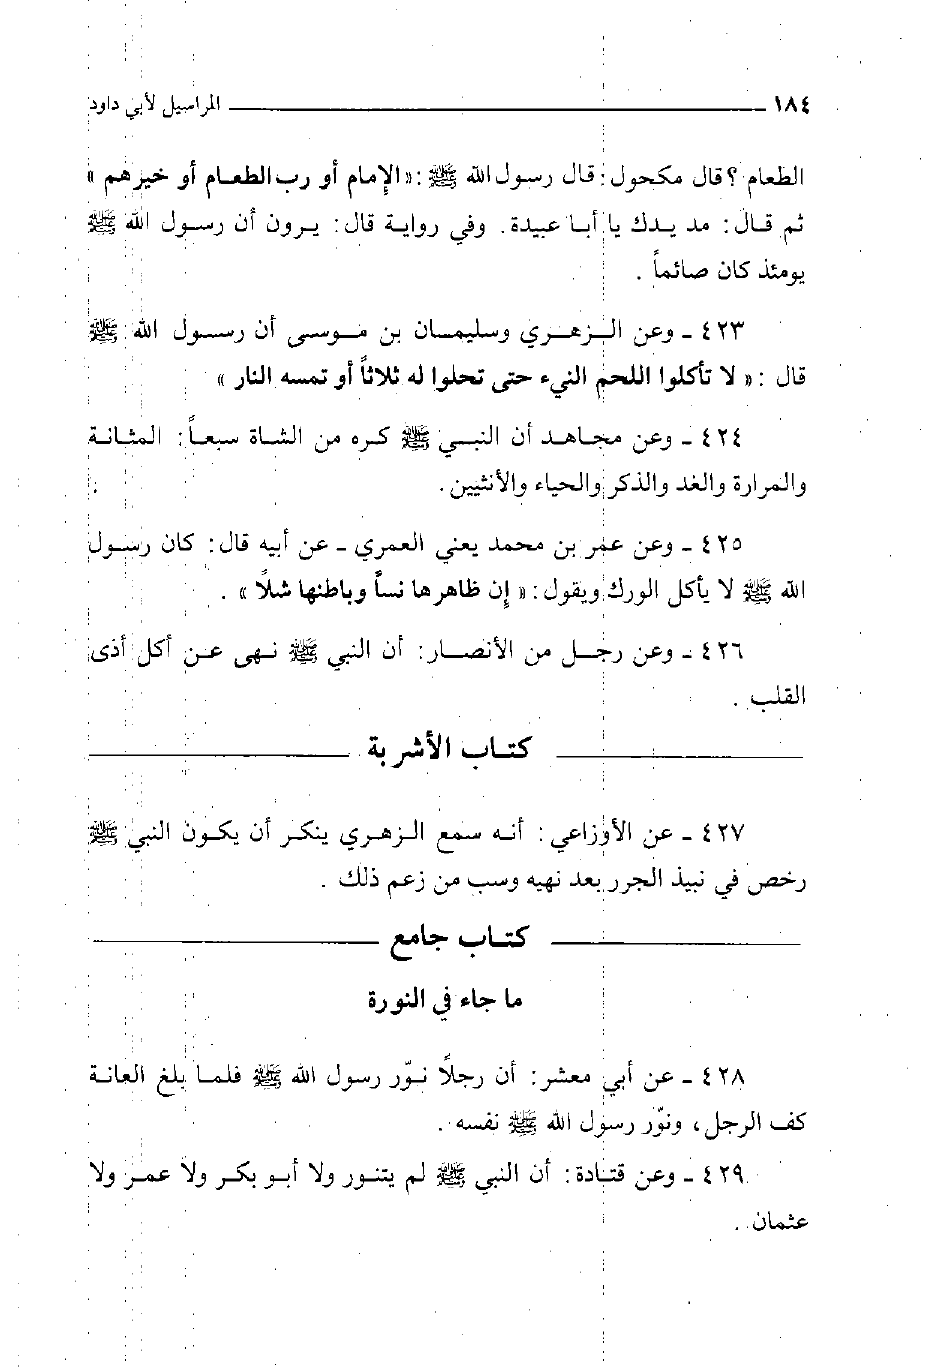 ١٨٤ المراسيل لأبي داود
الطعام؟ قال مكحول: قال رسول الله ﷺ: « الإمام أو رب الطعام أو خيرهم »
ثم قال: مد يدك يا أبا عبيدة. وفي رواية قال: يرون أن رسول الله ﷺ
يومئذ كان صائماً .
٤٢٣ ـ وعن الزهري وسليمان بن موسى أن رسول الله ﷺ
قال : « لا تأكلوا اللحم النيء حتى تحلوا له ثلاثاً أو تمسه النار »
٤٢٤ ـ وعن مجاهد أن النبي ﷺ كره من الشاة سبعاً: المثانة
والمرارة والغد والذكر والحياء والأنثيين.
٤٢٥ ـ وعن عمر بن محمد يعني العمري ـ عن أبيه قال: كان رسول
الله ﷺ لا يأكل الورك ويقول: « إن ظاهرها نسأ وباطنها شلأ » .
٤٢٦ ـ وعن رجل من الأنصار: أن النبي ﷺ نهى عن أكل أذى
القلب .
كتاب الأشربة
٤٢٧ ـ عن الأوزاعي: أنه سمع الزهري ينكر أن يكون النبي ﷺ
رخص في نبيذ الجرر بعد نهيه وسب من زعم ذلك .
كتاب جامع
ما جاء في النورة
٤٢٨ ـ عن أبي معشر: أن رجلاً نوّر رسول الله ﷺ فلما بلغ العانة
كف الرجل، ونوّر رسول الله ﷺ نفسه .
٤٢٩ ـ وعن قتادة: أن النبي ﷺ لم يتنور ولا أبو بكر ولا عمر ولا
عثمان .